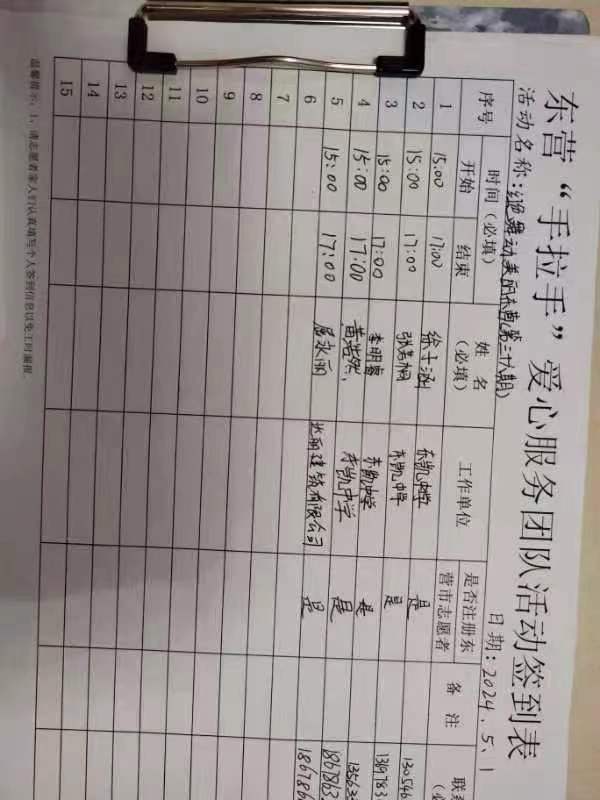 东营“手拉手”爱心服务团队活动签到表
活动名称: 舞动美丽东营(第三十八期) 日期:2024.5.1
序号 时间(必填) 姓名(必填) 工作单位 是否注册东营市志愿者 备注 联
开始 结束
1 15:00 17:00 徐子涵 东凯中学 是 130546
2 15:00 17:00 张 桐 东凯中学 是 1319783
3 15:00 17:00 李明睿 东凯中学 是 13563
4 15:00 17:00 黄浩然 东凯中学 是 1867863
5 15:00 17:00 永丽 丽建筑有限公司 是 186786
6
7
8
9
10
11
12
13
14
15
温馨提示:1、请志愿者家人们认真填写个人签到信息以免工时漏报。